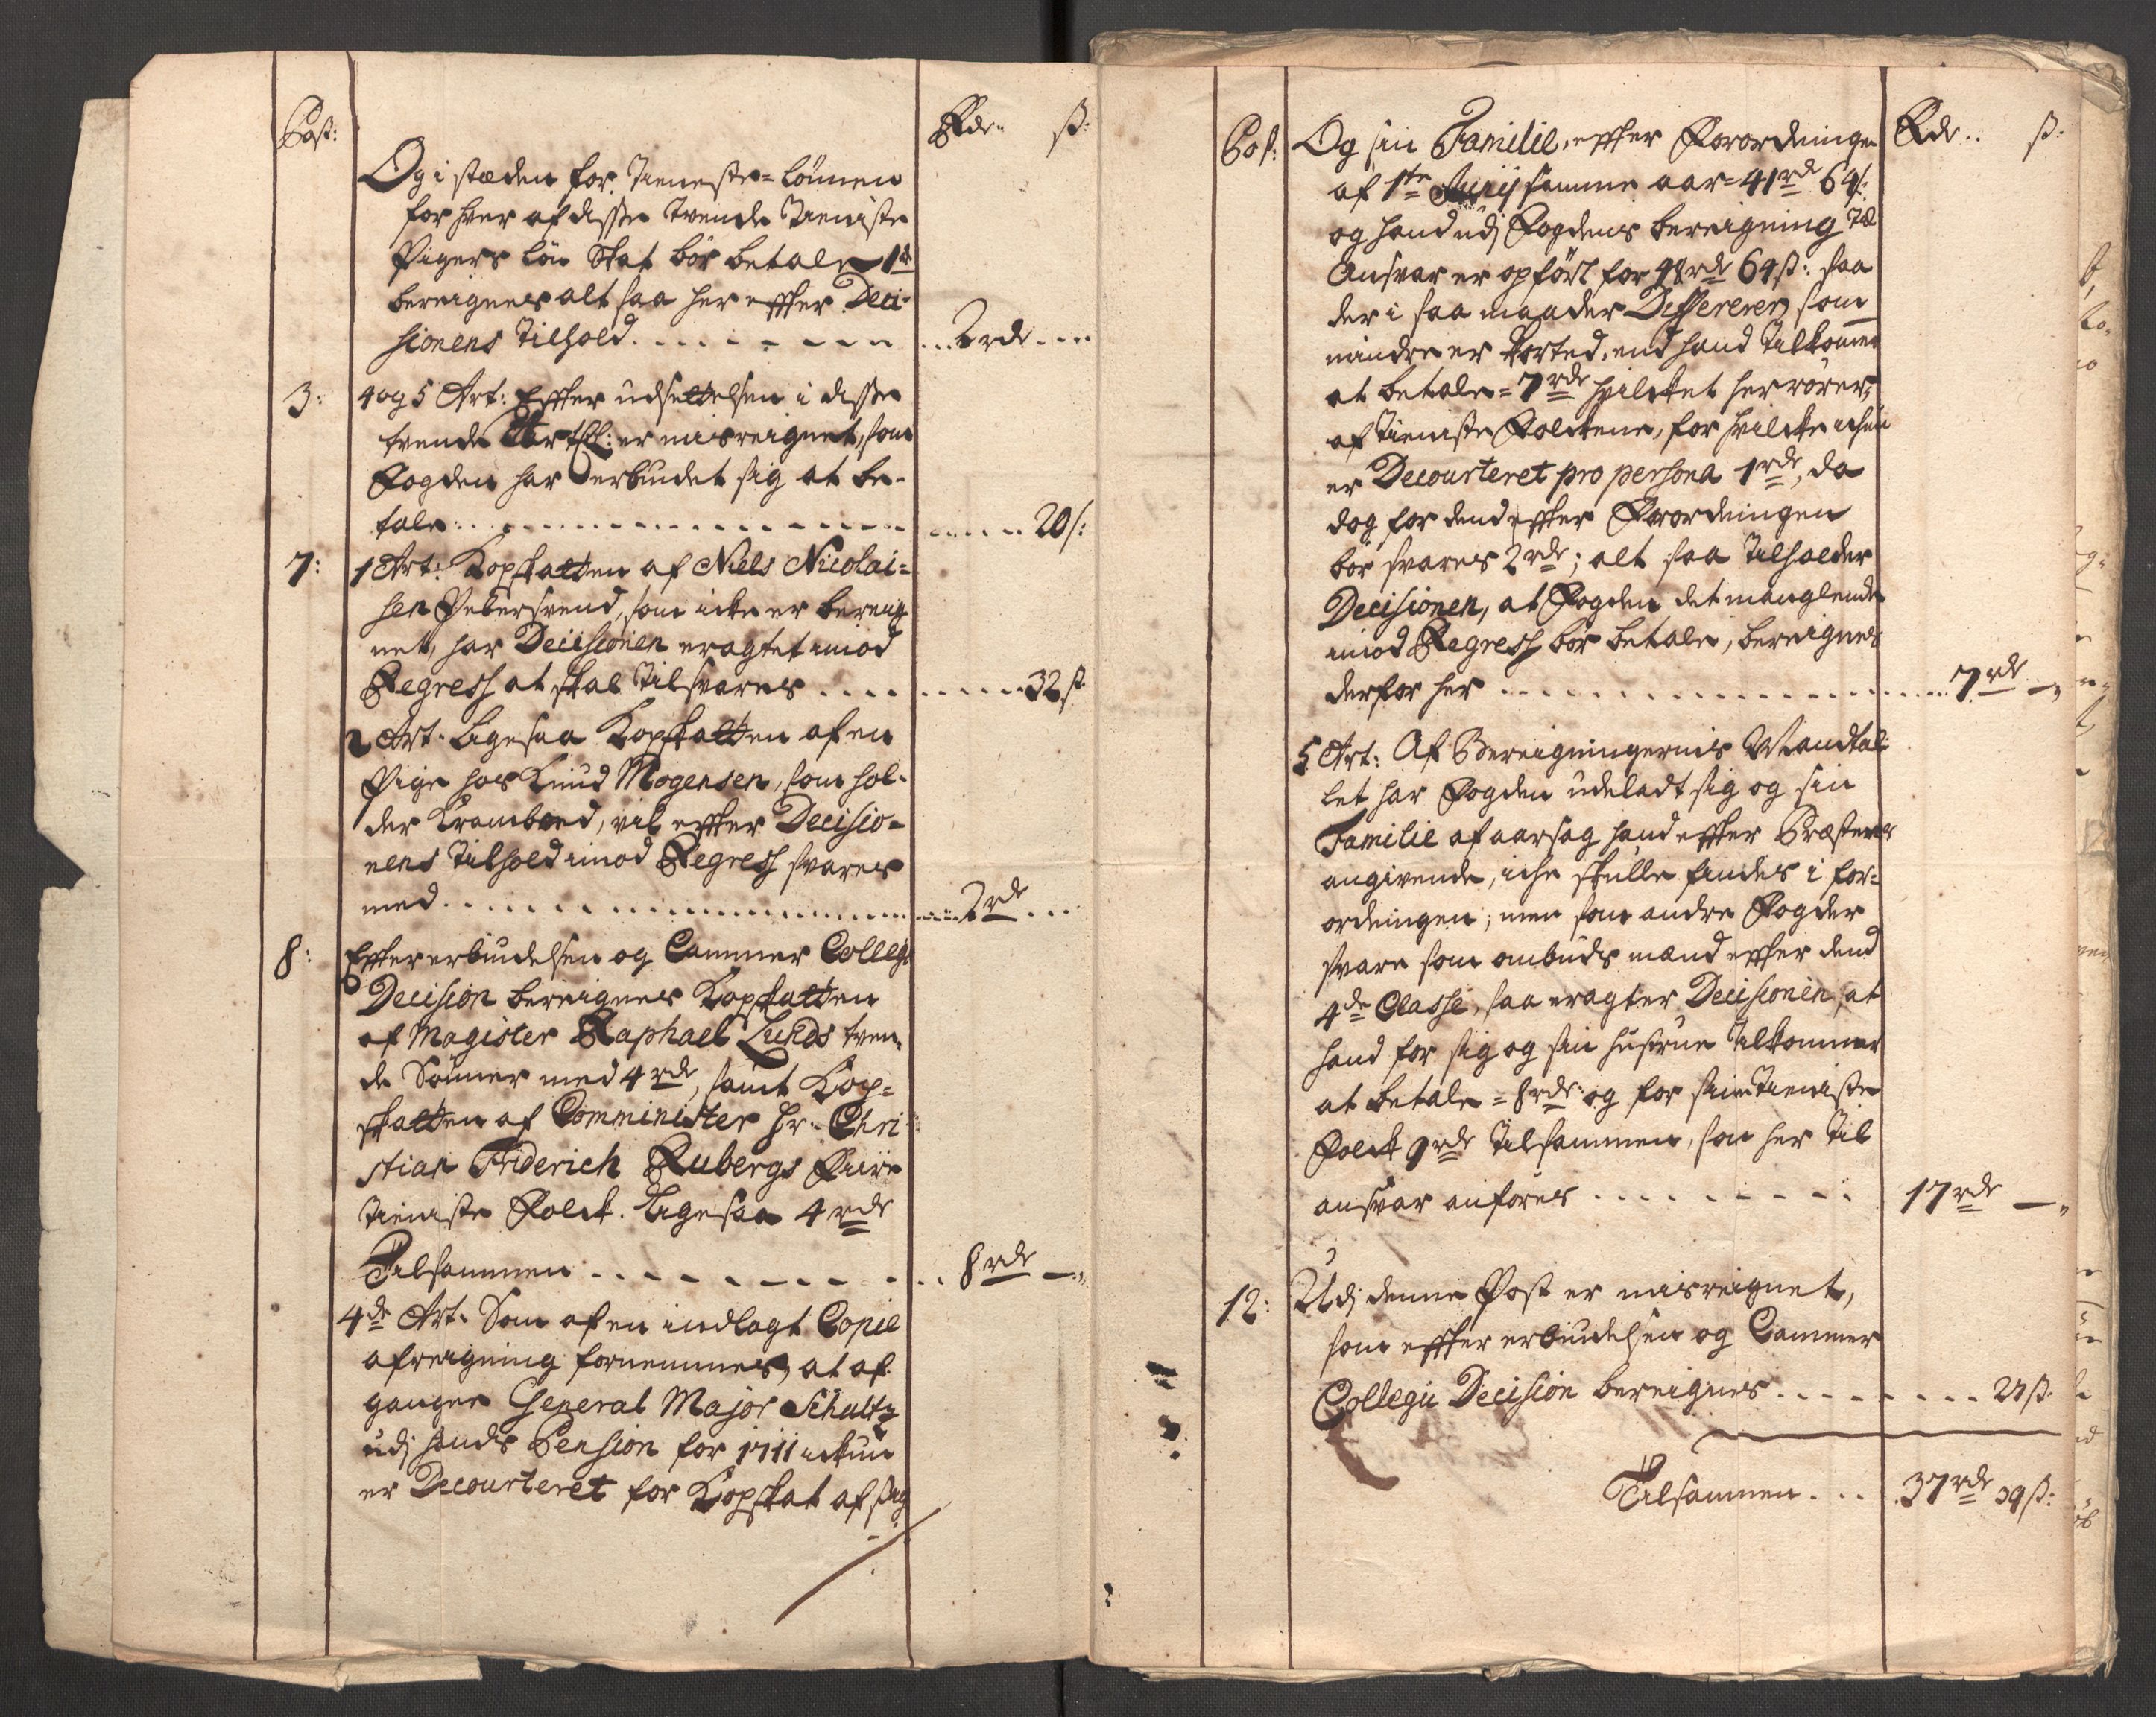 Post: Rdr. ß:
Og i stæden for Tieneste-Lönnen
for hver af disse tvende Tieniste
Pigers Lön Skat bör betale 1rd
bereignes alt saa her effter Deci-
sionens Tilhold ... 2rdr ...
3: 4 og 5 Art: Effter udsettelsen i disse
tvende Artcl: er misreignet, som
Fogden har erbudet sig at be-
tale ... 20 ß:
7: 1 Art: Kopskatten af Niels Nicolai-
sen Pebersvend, som icke er bereig
net, har Decisionen eragtet imod
Regress at skal Tilsvares ... 32 ß
2 Art. Ligesaa Kopskatten af en
Pige hos Knud Mogensen, som hol-
der Kramboed, vil effter Decisio-
nens Tilhold imod Regress svares
med ... 2rdr ...
8: Effter erbudelsen og Cammer Collegii
Decision bereignes Kopskatten
af Magister Raphael Lunds tven-
de Sönner med 4rdr, samt Kop-
skatten af Comminister Hr. Chri-
stian Friderich Rubergs Fiire
tieniste Folck. Ligesaa 4rdr
Tilsammen ... 8rdr —„
4de Art. Som af en indlagt Copie
afreigning fornemmes, at af
gangen General Major Schultz
udj hands Pension for 1711 ickun
er Decourteret for Kopskat af sig
Post: Rdr.. ß:
Og sin Familie, effter Forordningen
af 1te Junij samme aar = 41rdr 64 ß:
og hand udj Fogdens bereigning til
Ansvar er opfört for 48rdr 64 ß: saa
der i saa maader Differerer, som
mindre er korted, end hand Tilkommer
at betale = 7rdr hvilcket herrörer,
af Tieniste Folckene, for hvilcke ickun
er Decourteret pro persona 1rdr, da
dog for dend effter Forordningen
bör svares 2rdr; alt saa tilholder
Decisionen, at Fogden det manglende
imod Regress bör betale, bereignes
derfor her ... 7rdr —„
5 Art: Af Bereigningernes Mandtal-
let har Fogden udeladt sig og sin
Familie af aarsag hand effter Præstens
angivende, iche skulle findes i for-
ordningen; men som andre Fogder
svare som ombuds mænd effter dend
4de Classe, saa eragter Decisionen, at
hand for sig og sin hustrue Tilkommer
at betale = 8rdr og for sine Tieniste
Folck 9rdr Tilsammen, som her til
ansvar anföres ... 17rdr —„
12: Udj denne Post er misreignet,
som effter erbudelsen og Cammer
Collegii Decision bereignes ... 27 ß.
Tilsammen ... 37rdr 39 ß: